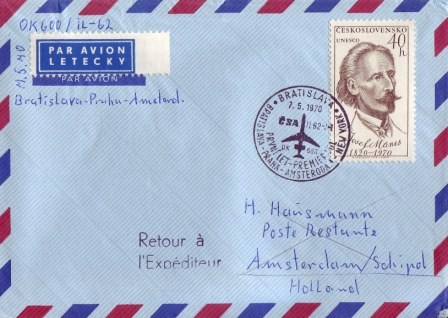 OK600/IL-62
PAR AVION
LETECKY
PAR AVION
Bratislava-Praha-Amsterd.
ČESKOSLOVENSKO
UNESCO
40
h
Josef Mánes
1820-1970
BRATISLAVA
7.5.1970
ČSA IL62
OK
PRVNÍ LET-PREMIER VOL
BRATISLAVA-PRAHA-AMSTERODAM-NEW YORK
H. Hausmann
Poste Restante
Amsterdam/Schipol
Holland
Retour à
l'Expéditeur